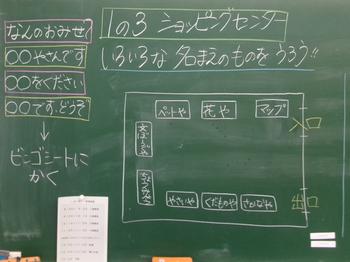 なんのおみせ?
〇〇やさんです
〇〇をください
〇〇です。どうぞ
ビンゴシートに
かく
1の3 ショッピングセンター
いろいろな 名まえのものを うろう!!
ペットや
花や
マップ
入口
やさいや
くだものや
さかなや
出口